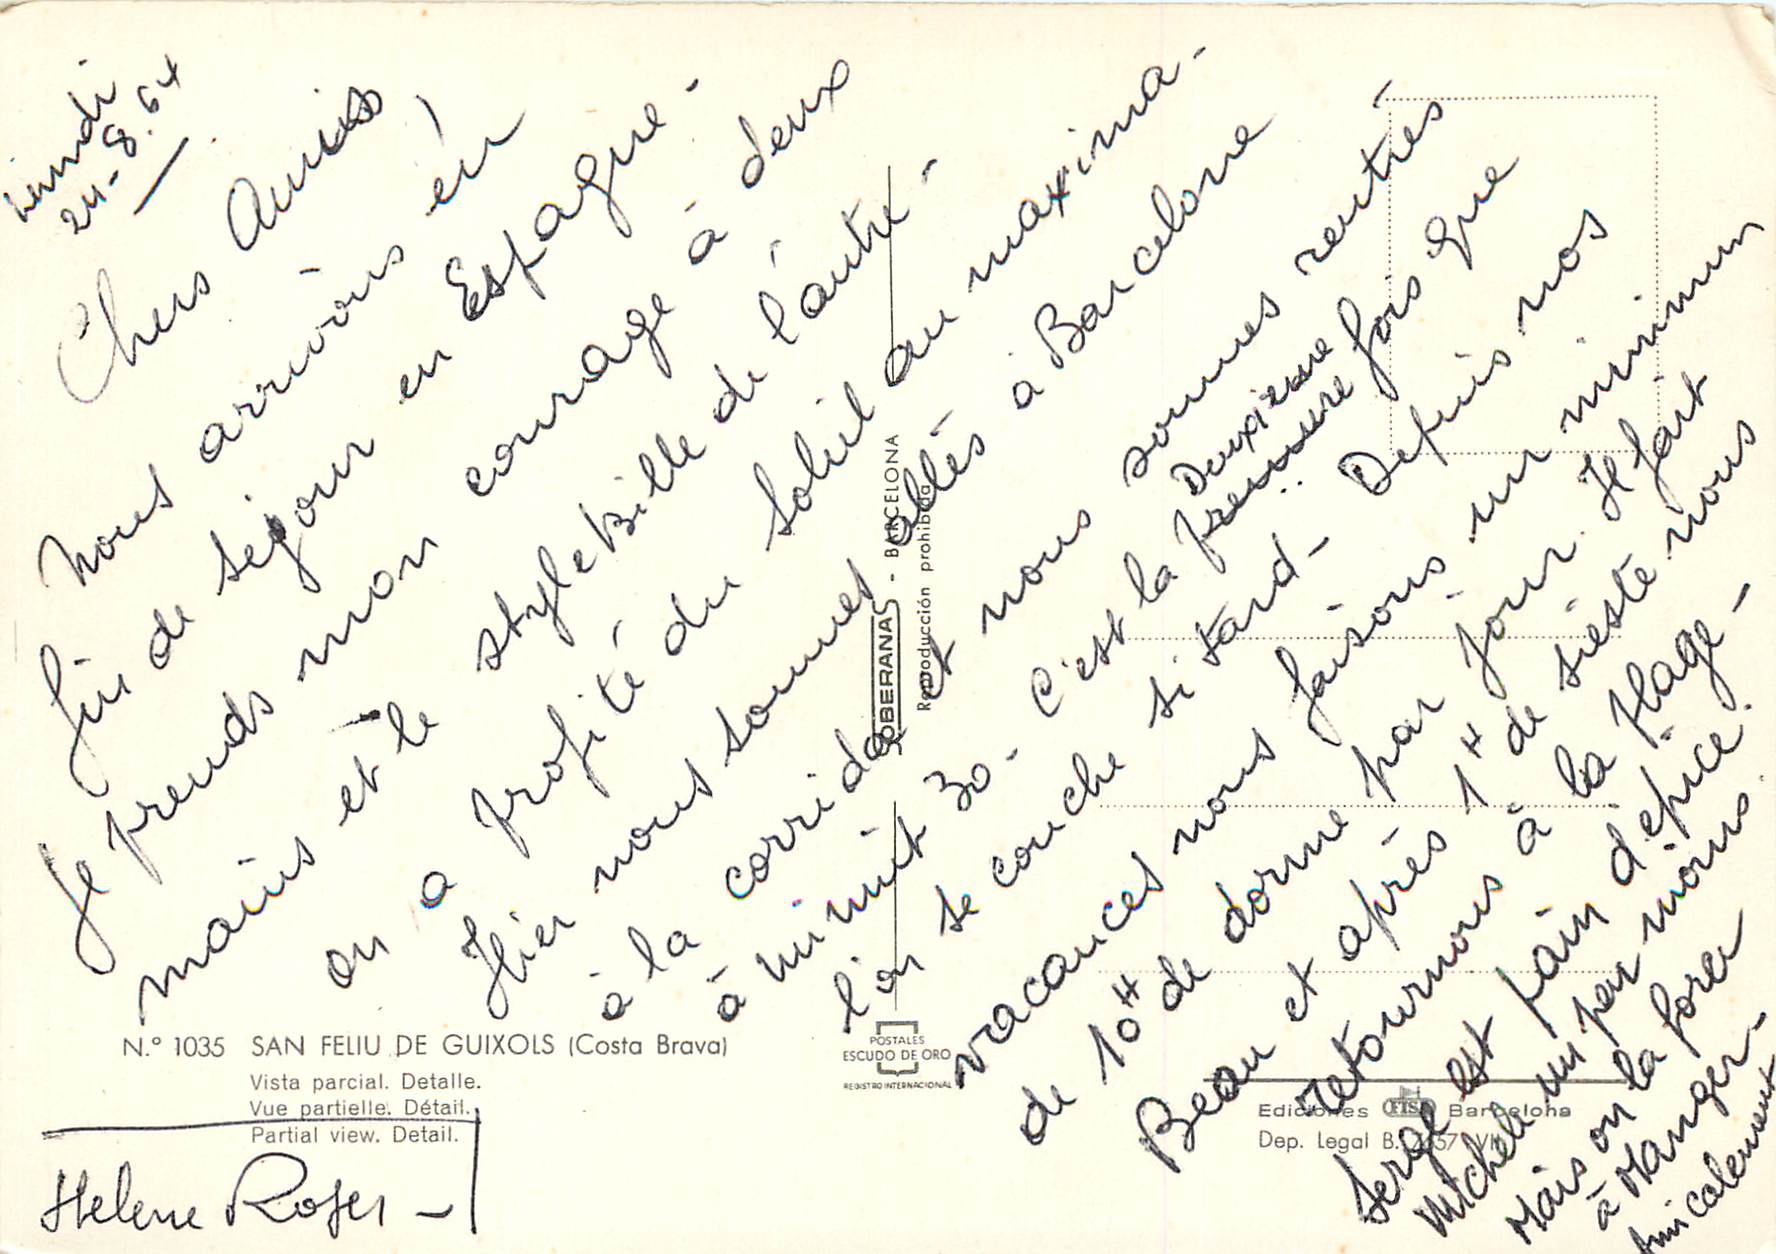 Lundi
24-8.64
Chers Amis,
Nous arrivons en
fin de séjour en Espagne-
Je prends mon courage à deux
mains et le style Bille de l'autre-
on a profité du soleil au maxima-
Hier nous sommes allés à Barcelone
à la corrida et nous sommes rentrés
à minuit 30- C'est la première Deuxième fois que
l'on se couche si tard- Depuis nos
vacances nous faisons un minimum
de 10H de dorme par jour. Il fait
Beau et après 1H de sieste nous
retournons à la plage-
Serge est pain d'épice.
Michele un peu moins
Mais on la force
à Manger-
Amicalement
Helene Roger-
N.º 1035 SAN FELIU DE GUIXOLS (Costa Brava)
Vista parcial. Detalle.
Vue partielle. Détail.
Partial view. Detail.
SOBERANAS - BARCELONA
Reproducción prohibida
POSTALES
ESCUDO DE ORO
REGISTRO INTERNACIONAL
Ediciones FISA Barcelona
Dep. Legal B.